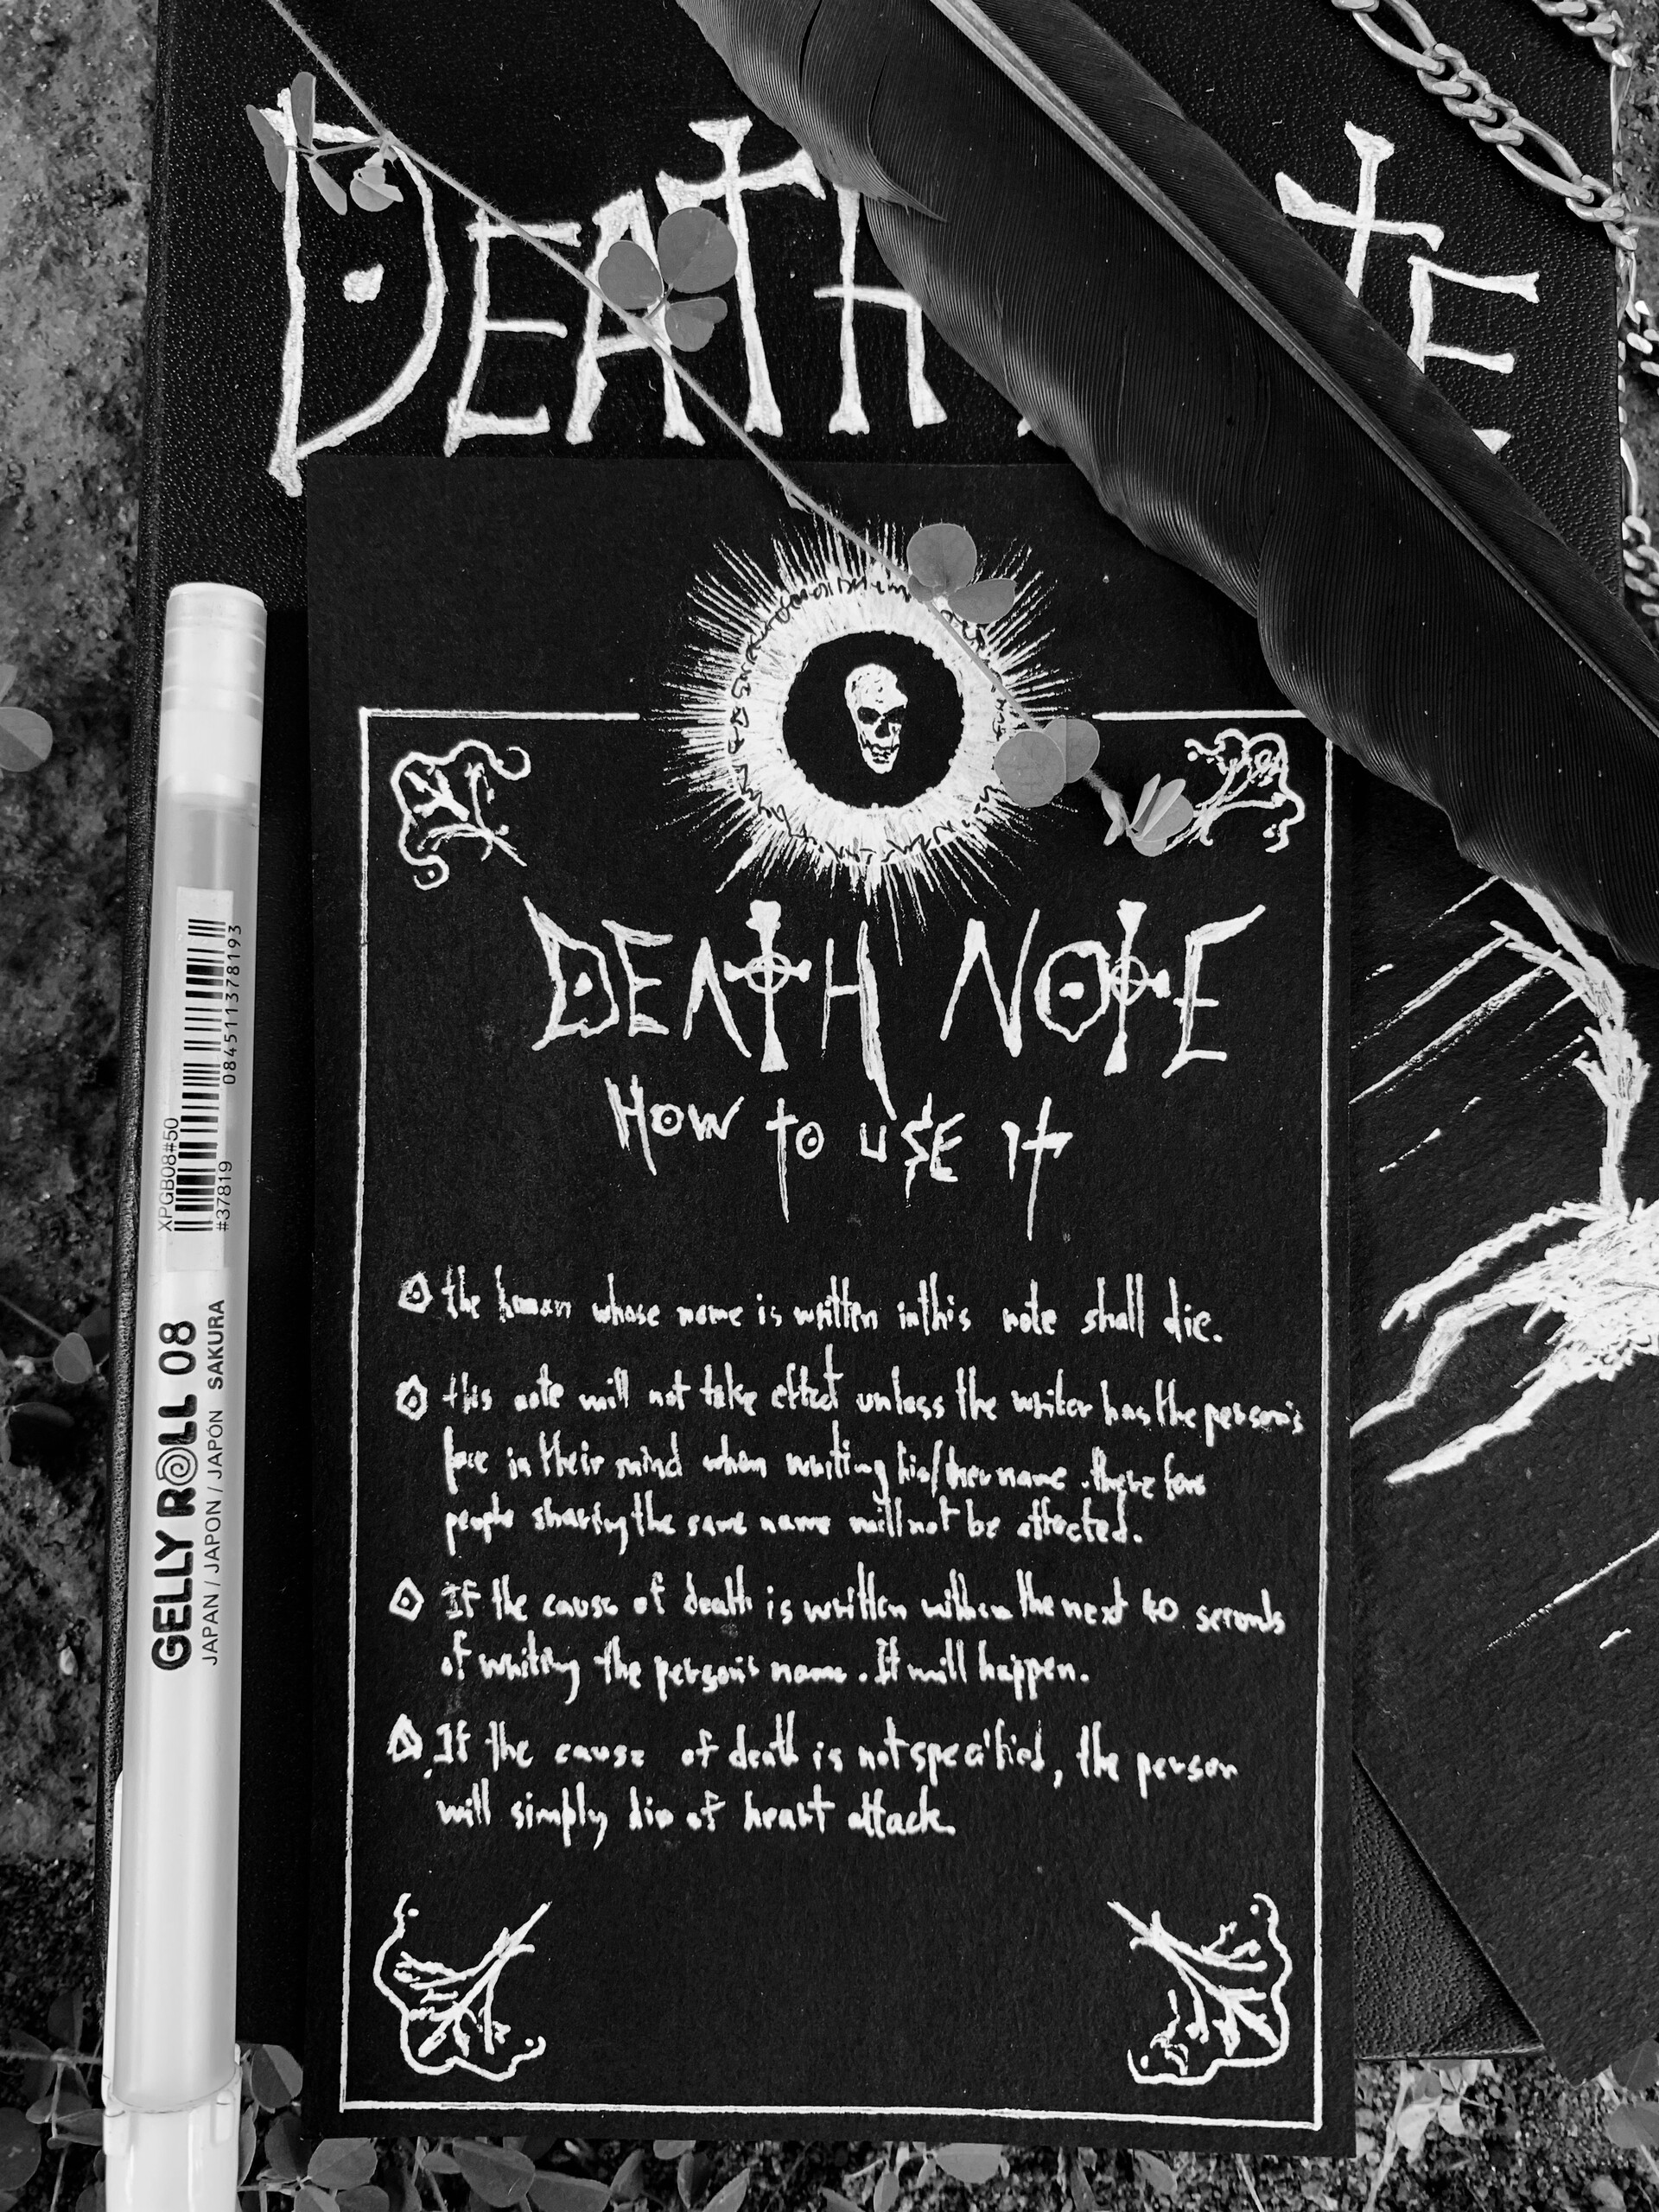 DEATH   TE
DEATH NOTE
HOW TO USE It
the human whose name is written inthis note shall die.
this note will not take effect unless the writer has the person's
face in their mind when writing his/her name. there fore
people sharing the same name will not be affected.
If the cause of death is written within the next 40 seconds
of writing the person's name. It will happen.
If the cause of death is not specified, the person
will simply die of heart attack.
GELLY ROLL 08
JAPAN / JAPON / JAPÓN SAKURA
XPGB08#50
#37819
084511378193